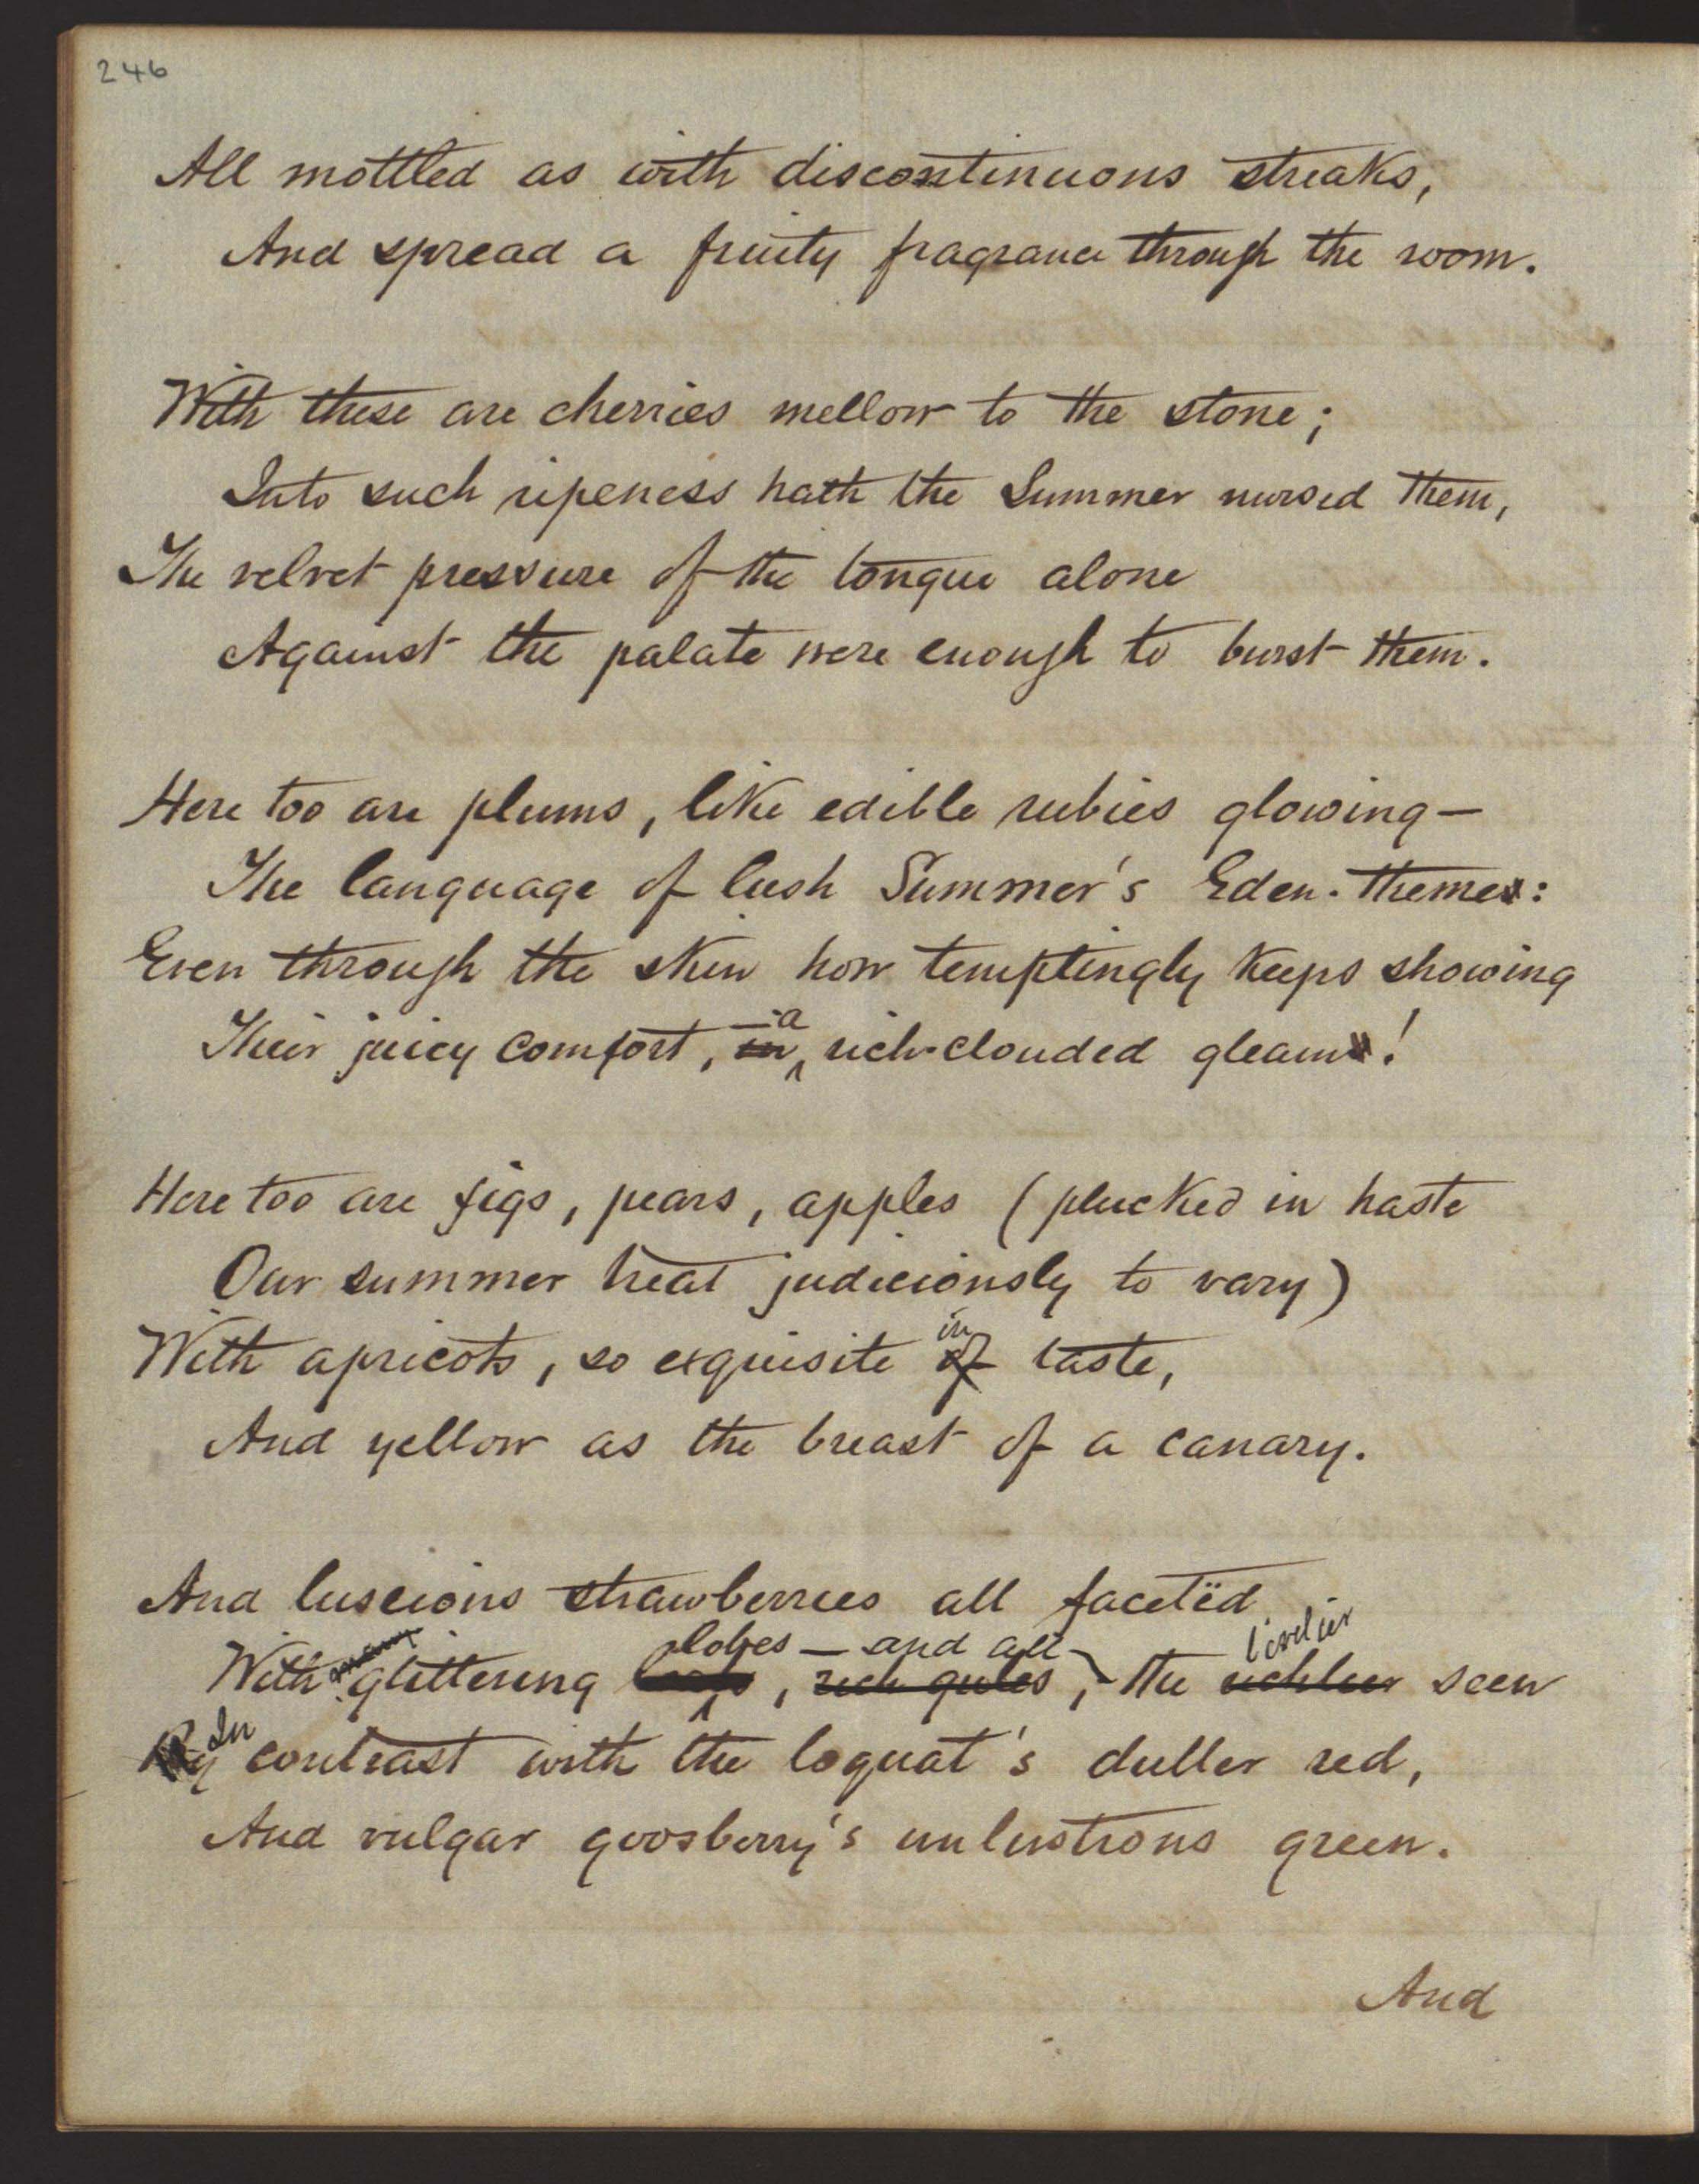 246
All mottled as with discontinuous streaks,
And spread a fruity fragrance through the room.
With these are cherries mellow to the stone;
Into such ripeness hath the Summer nursed them,
The velvet pressure of the tongue alone
Against the palate were enough to burst them.
Here too are plums, like edible rubies glowing—
The language of lush Summer's Eden-theme:
Even through the skin how temptingly keeps showing
Their juicy comfort, in —a rich-clouded gleam!
Here too are figs, pears, apples (plucked in haste
Our summer treat judiciously to vary)
With apricots, so exquisite of in taste,
And yellow as the breast of a canary.
And luscious strawberries all facetëd
With many glittering lobes — and all, rich gules, the livelier seen
By In contrast with the loquat's duller red,
And vulgar goosberry's unlustrous green.
And